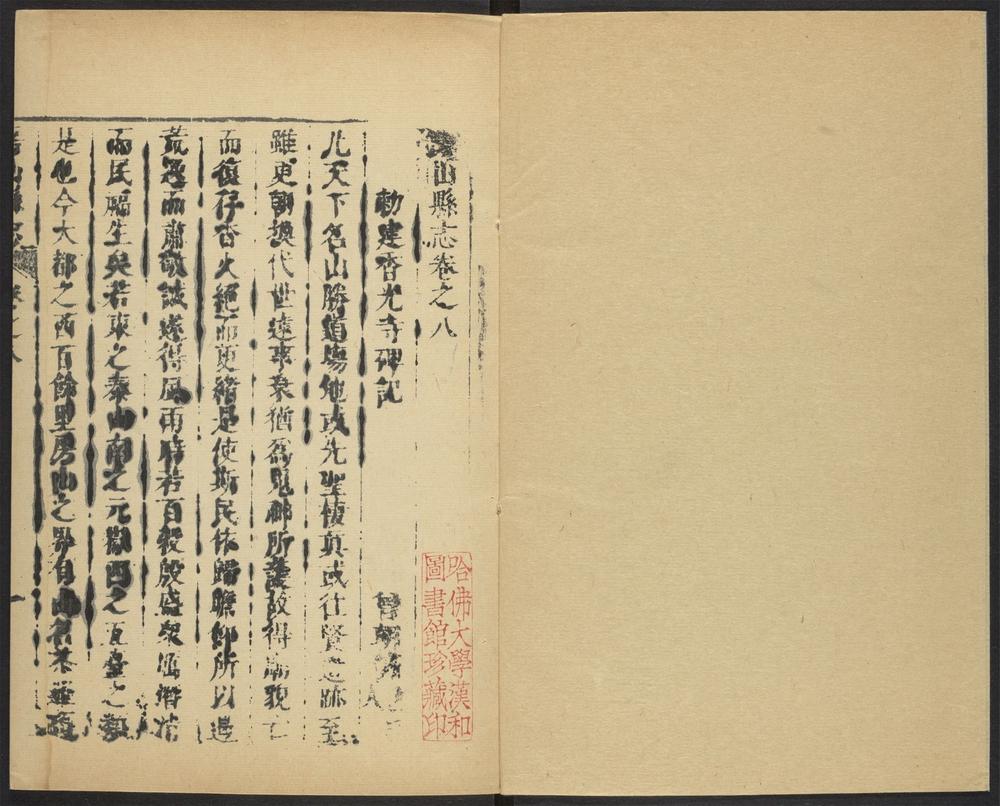 山縣志卷之八
勅建香光寺碑記
曾朝
凡天下名山勝道場地或先聖棲真或往賢之跡至
雖更朝換代世遠事衰猶為鬼神所護故得廟貌亡
而復存香火絕而更緒是使斯民依歸瞻仰所以邊
荒逺而肅敬誠遂得風雨時若百穀殷盛衆
而民福生矣若東之泰山南之元嶽西之五臺之類
是也今大都之西百餘里房山之界有山名
山縣志 卷之八 一
哈佛大學漢和
圖書館珍藏印